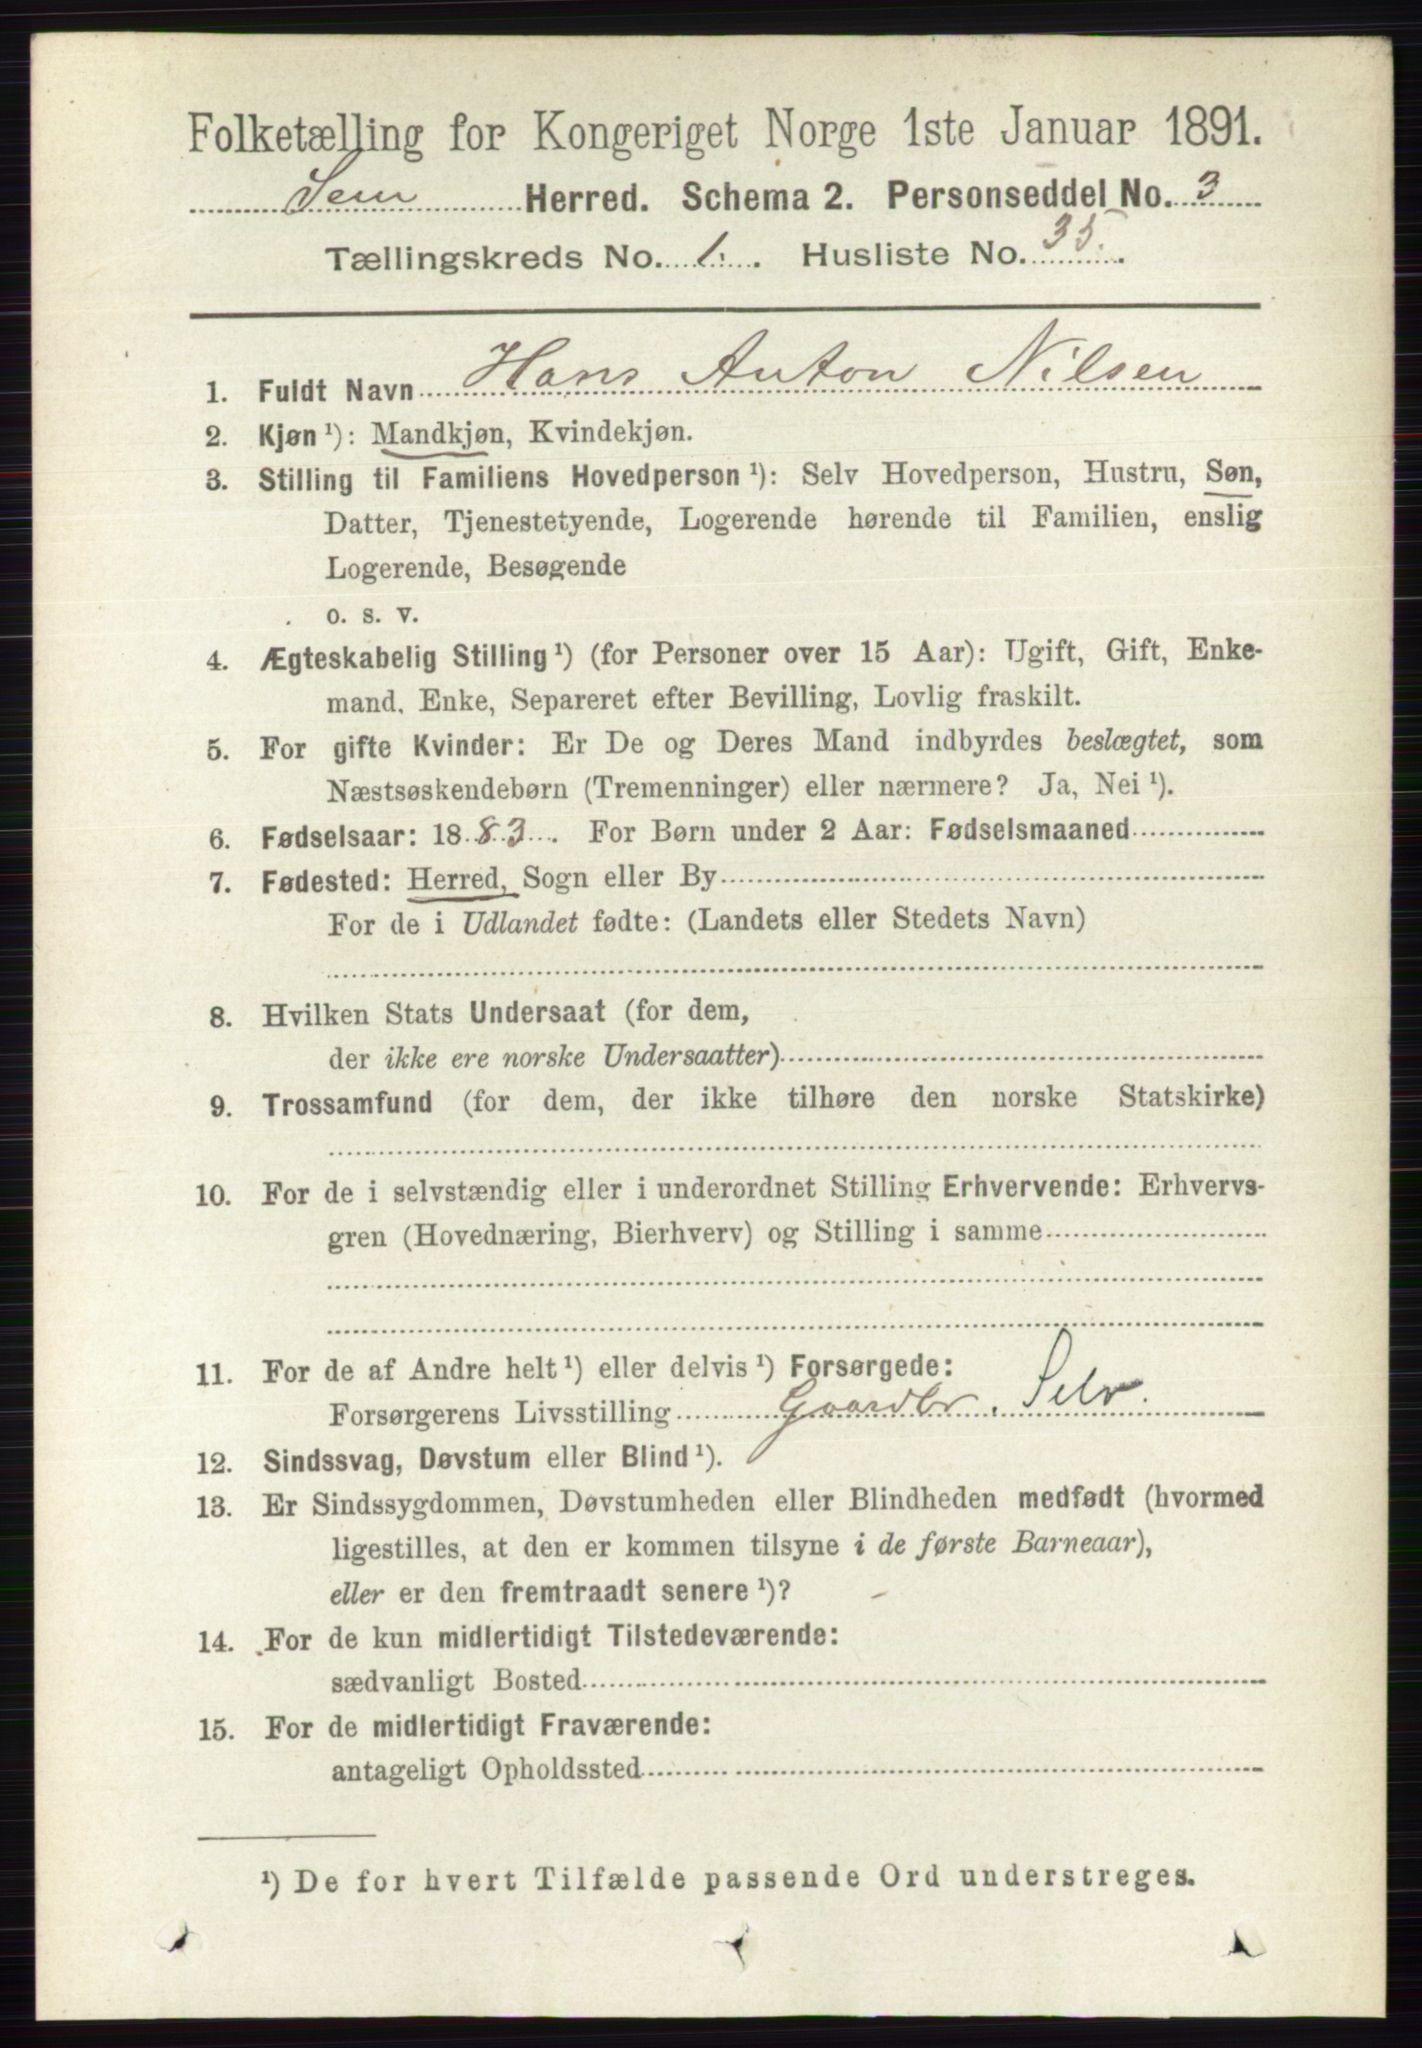 Folketælling for Kongeriget Norge 1ste Januar 1891.
Sem Herred. Schema 2. Personseddel No. 3
Tællingskreds No. 1. Husliste No. 35.
1. Fuldt Navn Hans Anton Nilsen
2. Kjøn ¹): Mandkjøn, Kvindekjøn.
3. Stilling til Familiens Hovedperson ¹): Selv Hovedperson, Hustru, Søn,
Datter, Tjenestetyende, Logerende hørende til Familien, enslig
Logerende, Besøgende
o. s. v.
4. Ægteskabelig Stilling ¹) (for Personer over 15 Aar): Ugift, Gift, Enke-
mand, Enke, Separeret efter Bevilling, Lovlig fraskilt.
5. For gifte Kvinder: Er De og Deres Mand indbyrdes beslægtet, som
Næstsøskendebørn (Tremenninger) eller nærmere? Ja, Nei ¹).
6. Fødselsaar: 1883. For Børn under 2 Aar: Fødselsmaaned
7. Fødested: Herred, Sogn eller By
For de i Udlandet fødte: (Landets eller Stedets Navn)
8. Hvilken Stats Undersaat (for dem,
der ikke ere norske Undersaatter)
9. Trossamfund (for dem, der ikke tilhøre den norske Statskirke)
10. For de i selvstændig eller i underordnet Stilling Erhvervende: Erhvervs-
gren (Hovednæring, Bierhverv) og Stilling i samme
11. For de af Andre helt ¹) eller delvis ¹) Forsørgede:
Forsørgerens Livsstilling Gaardbr. Selv.
12. Sindssvag, Døvstum eller Blind ¹).
13. Er Sindssygdommen, Døvstumheden eller Blindheden medfødt (hvormed
ligestilles, at den er kommen tilsyne i de første Barneaar),
eller er den fremtraadt senere ¹)?
14. For de kun midlertidigt Tilstedeværende:
sædvanligt Bosted
15. For de midlertidigt Fraværende:
antageligt Opholdssted
¹) De for hvert Tilfælde passende Ord understreges.